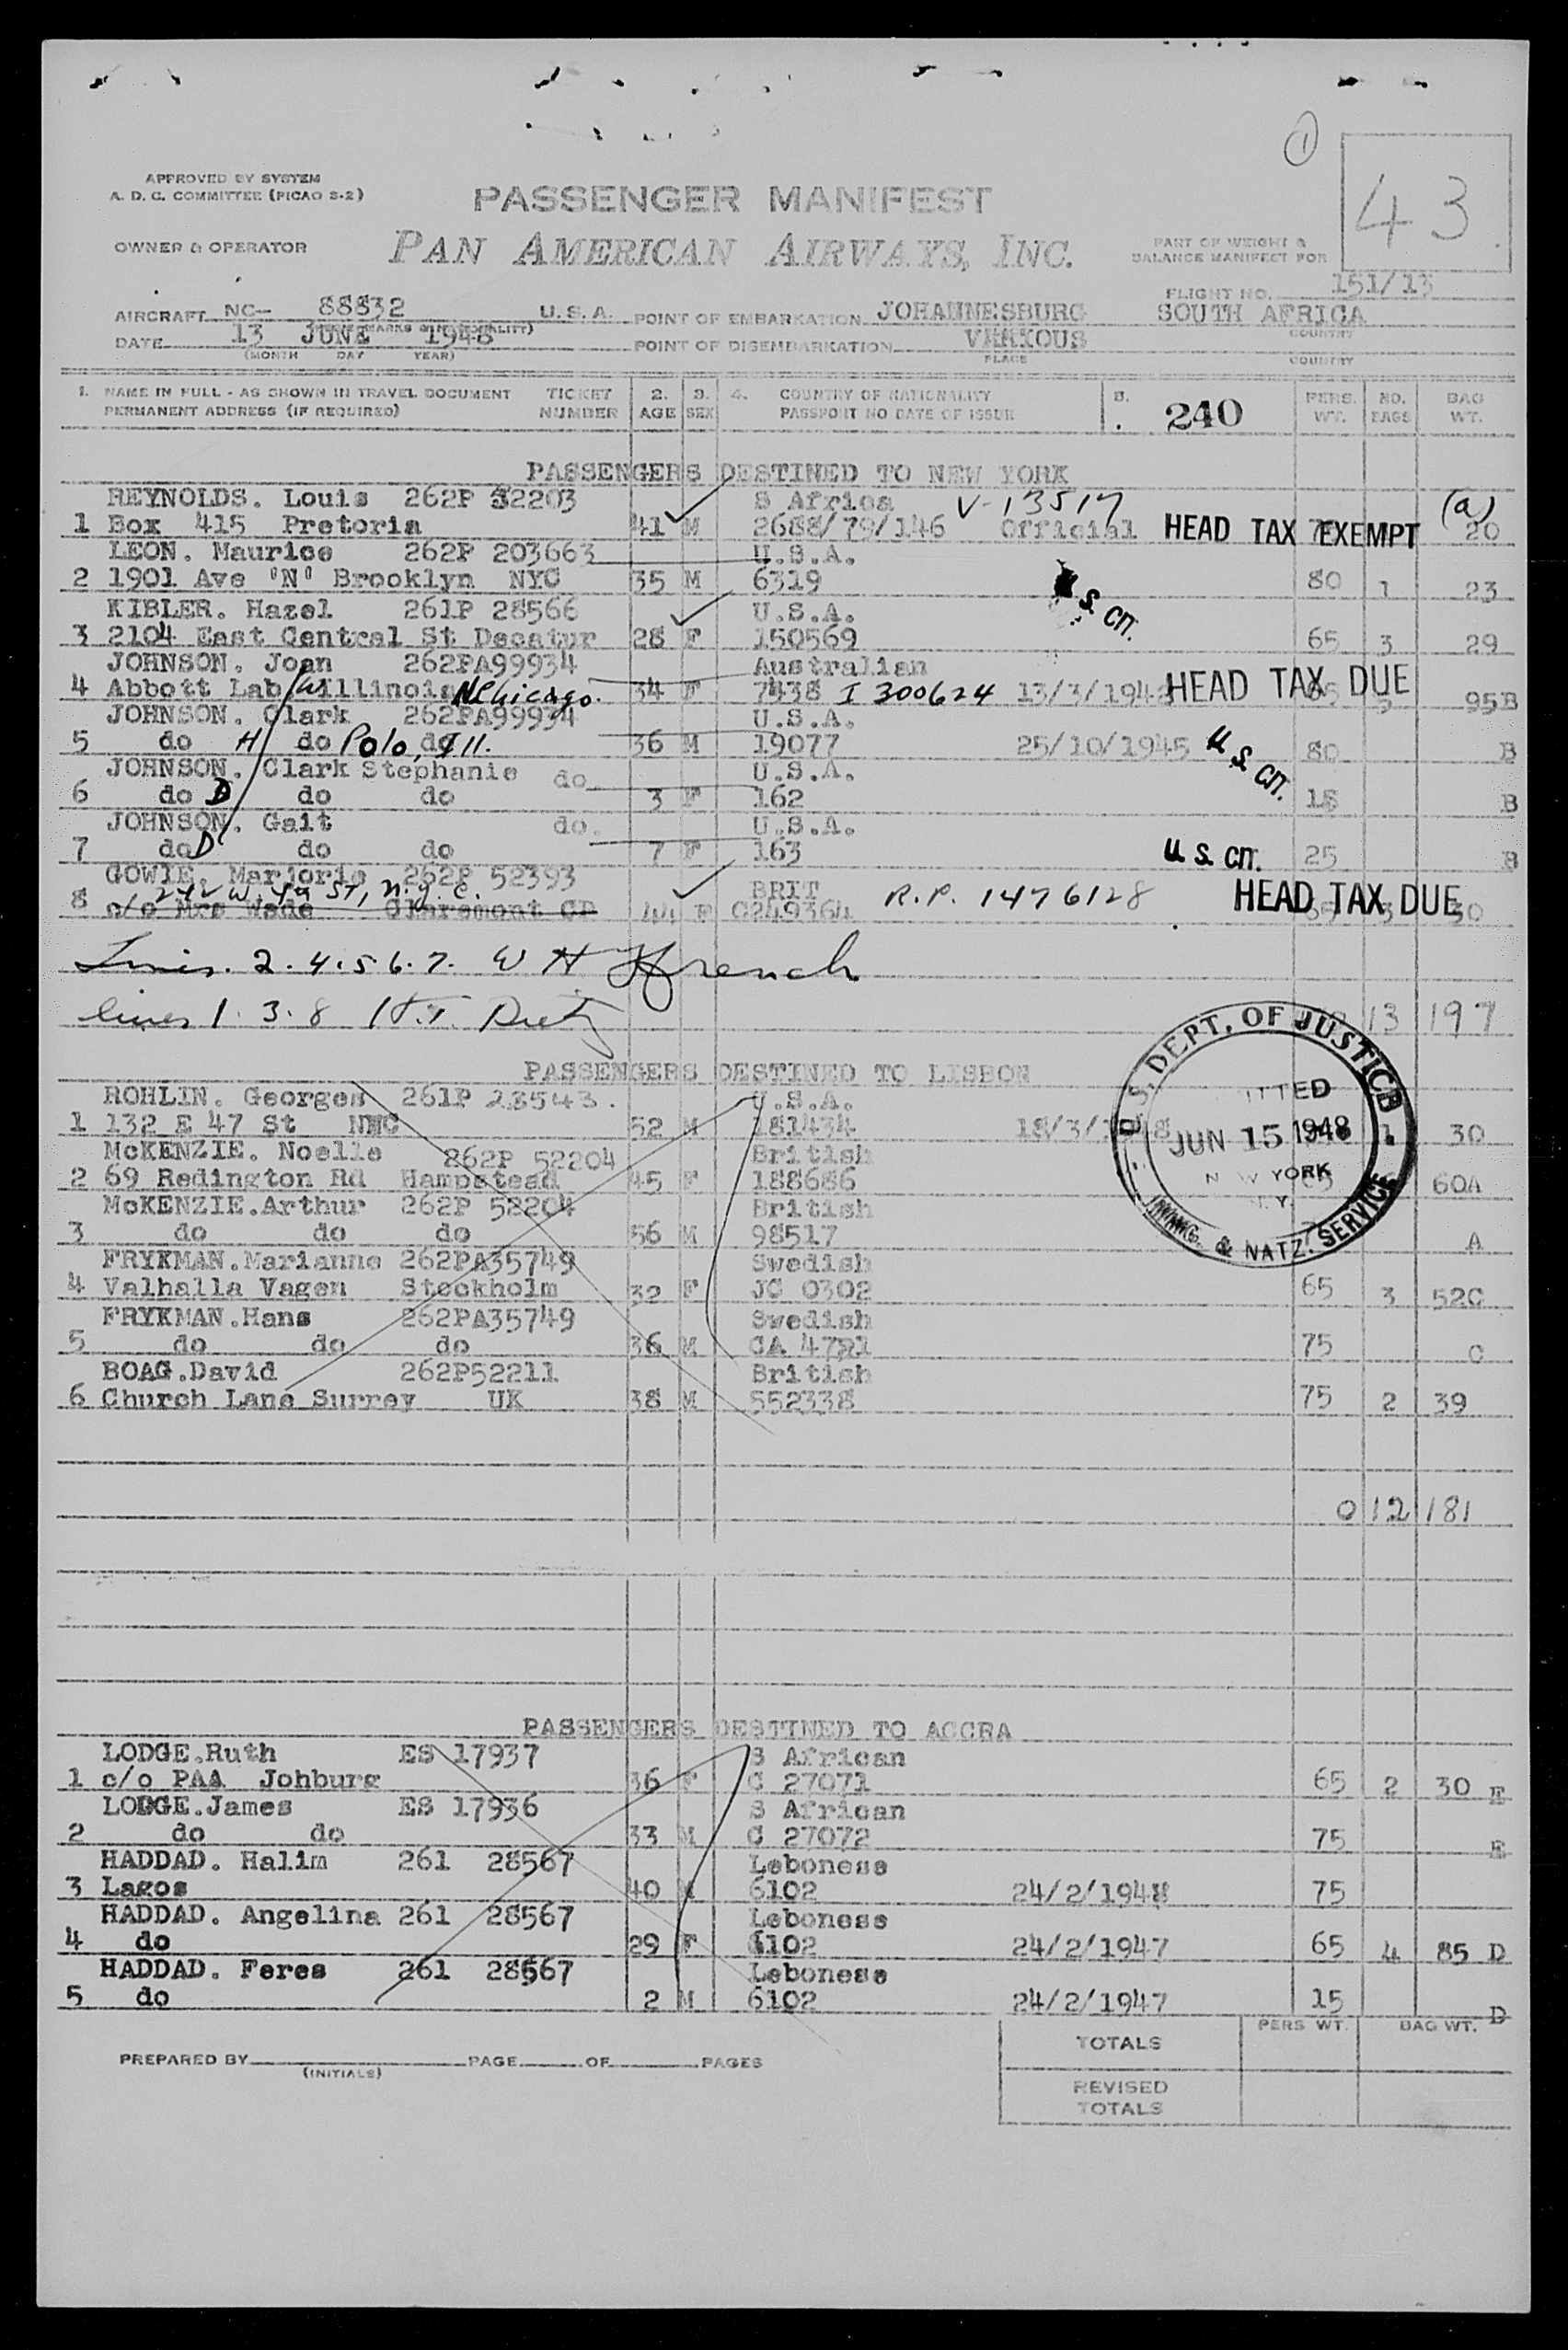 1
43
APPROVED BY SYSTEM
A. D. C. COMMITTEE (PICAO S-2)
PASSENGER MANIFEST
OWNER & OPERATOR
PAN AMERICAN AIRWAYS, INC.
PART OF WEIGHT &
BALANCE MANIFEST FOR
FLIGHT NO. 151/13
AIRCRAFT NC- 88832 U.S.A. POINT OF EMBARKATION JOHANNESBURG SOUTH AFRICA
COUNTRY
DATE 13 JUNE 1948 POINT OF DISEMBARKATION VARIOUS
(MONTH DAY YEAR) PLACE COUNTRY
1. NAME IN FULL - AS SHOWN IN TRAVEL DOCUMENT TICKET 2. 3. 4. COUNTRY OF NATIONALITY 5. PERS. NO. BAG
PERMANENT ADDRESS (IF REQUIRED) NUMBER AGE SEX PASSPORT NO DATE OF ISSUE 240 WT. BAGS WT.
PASSENGERS DESTINED TO NEW YORK
REYNOLDS. Louis 262P 32203 S Africa V-13517 (a)
1 Box 415 Pretoria 41 M 2688/79/146 Official HEAD TAX EXEMPT 20
LEON. Maurice 262P 203663 U.S.A.
2 1901 Ave "N" Brooklyn NYC 35 M 6319 80 1 23
KIBLER. Hazel 261P 28566 U.S.A. U.S. CIT.
3 2104 East Central St Decatur 28 F 150569 65 3 29
JOHNSON. Joan 262PA99934 Australian
4 Abbott Lab W Illinois N Chicago. 34 F 7438 I 300624 13/3/1948 HEAD TAX DUE 95B
JOHNSON. Clark 262PA99934 U.S.A.
5 do H do Polo, Ill. 36 M 19077 25/10/1945 U.S. CIT. 80 B
JOHNSON. Clark Stephanie do U.S.A.
6 do D do do 3 F 162 18 B
JOHNSON. Gait do. U.S.A.
7 do D do do 7 F 163 U.S. CIT. 25 B
GOWIE. Marjorie 262P 52393 BRIT R.P. 1476128 HEAD TAX DUE
8 c/o Mrs Wade Claremont CP 44 F C249364 30
Lines. 2.4.5.6.7. W H French
lines 1. 3. 8 13 197
PASSENGERS DESTINED TO LISBON
ROHLIN. Georges 261P 23543. U.S.A.
1 132 E 47 St NYC 52 M 181434 18/3/1948 1 30
McKENZIE. Noelle 262P 52204 British
2 69 Redington Rd Hampstead 45 F 188686 60A
McKENZIE.Arthur 262P 52204 British
3 do do do 56 M 98517 A
U.S. DEPT. OF JUSTICE
JUN 15 1948
YORK
N.Y.
IMMIG. & NATZ. SERVICE
FRYKMAN.Marianne 262PA35749 Swedish
4 Valhalla Vagen Stockholm 32 F JC 0302 65 3 52C
FRYKMAN.Hans 262PA35749 Swedish
5 do do do 36 M CA 4791 75 C
BOAG.David 262P52211 British
6 Church Lane Surrey UK 38 M 552338 75 2 39
0 12 181
PASSENGERS DESTINED TO ACCRA
LODGE.Ruth ES 17937 S African
1 c/o PAA Johburg 36 F C 27071 65 2 30 E
LODGE.James ES 17936 S African
2 do do 33 M C 27072 75 E
HADDAD. Halim 261 28567 Leboness
3 Lagos 40 M 6102 24/2/1948 75
HADDAD. Angelina 261 28567 Leboness
4 do 29 F 6102 24/2/1947 65 4 85 D
HADDAD. Feres 261 28567 Leboness
5 do 2 M 6102 24/2/1947 15 D
PERS WT. BAG WT.
TOTALS
PREPARED BY PAGE OF PAGES
(INITIALS)
REVISED
TOTALS